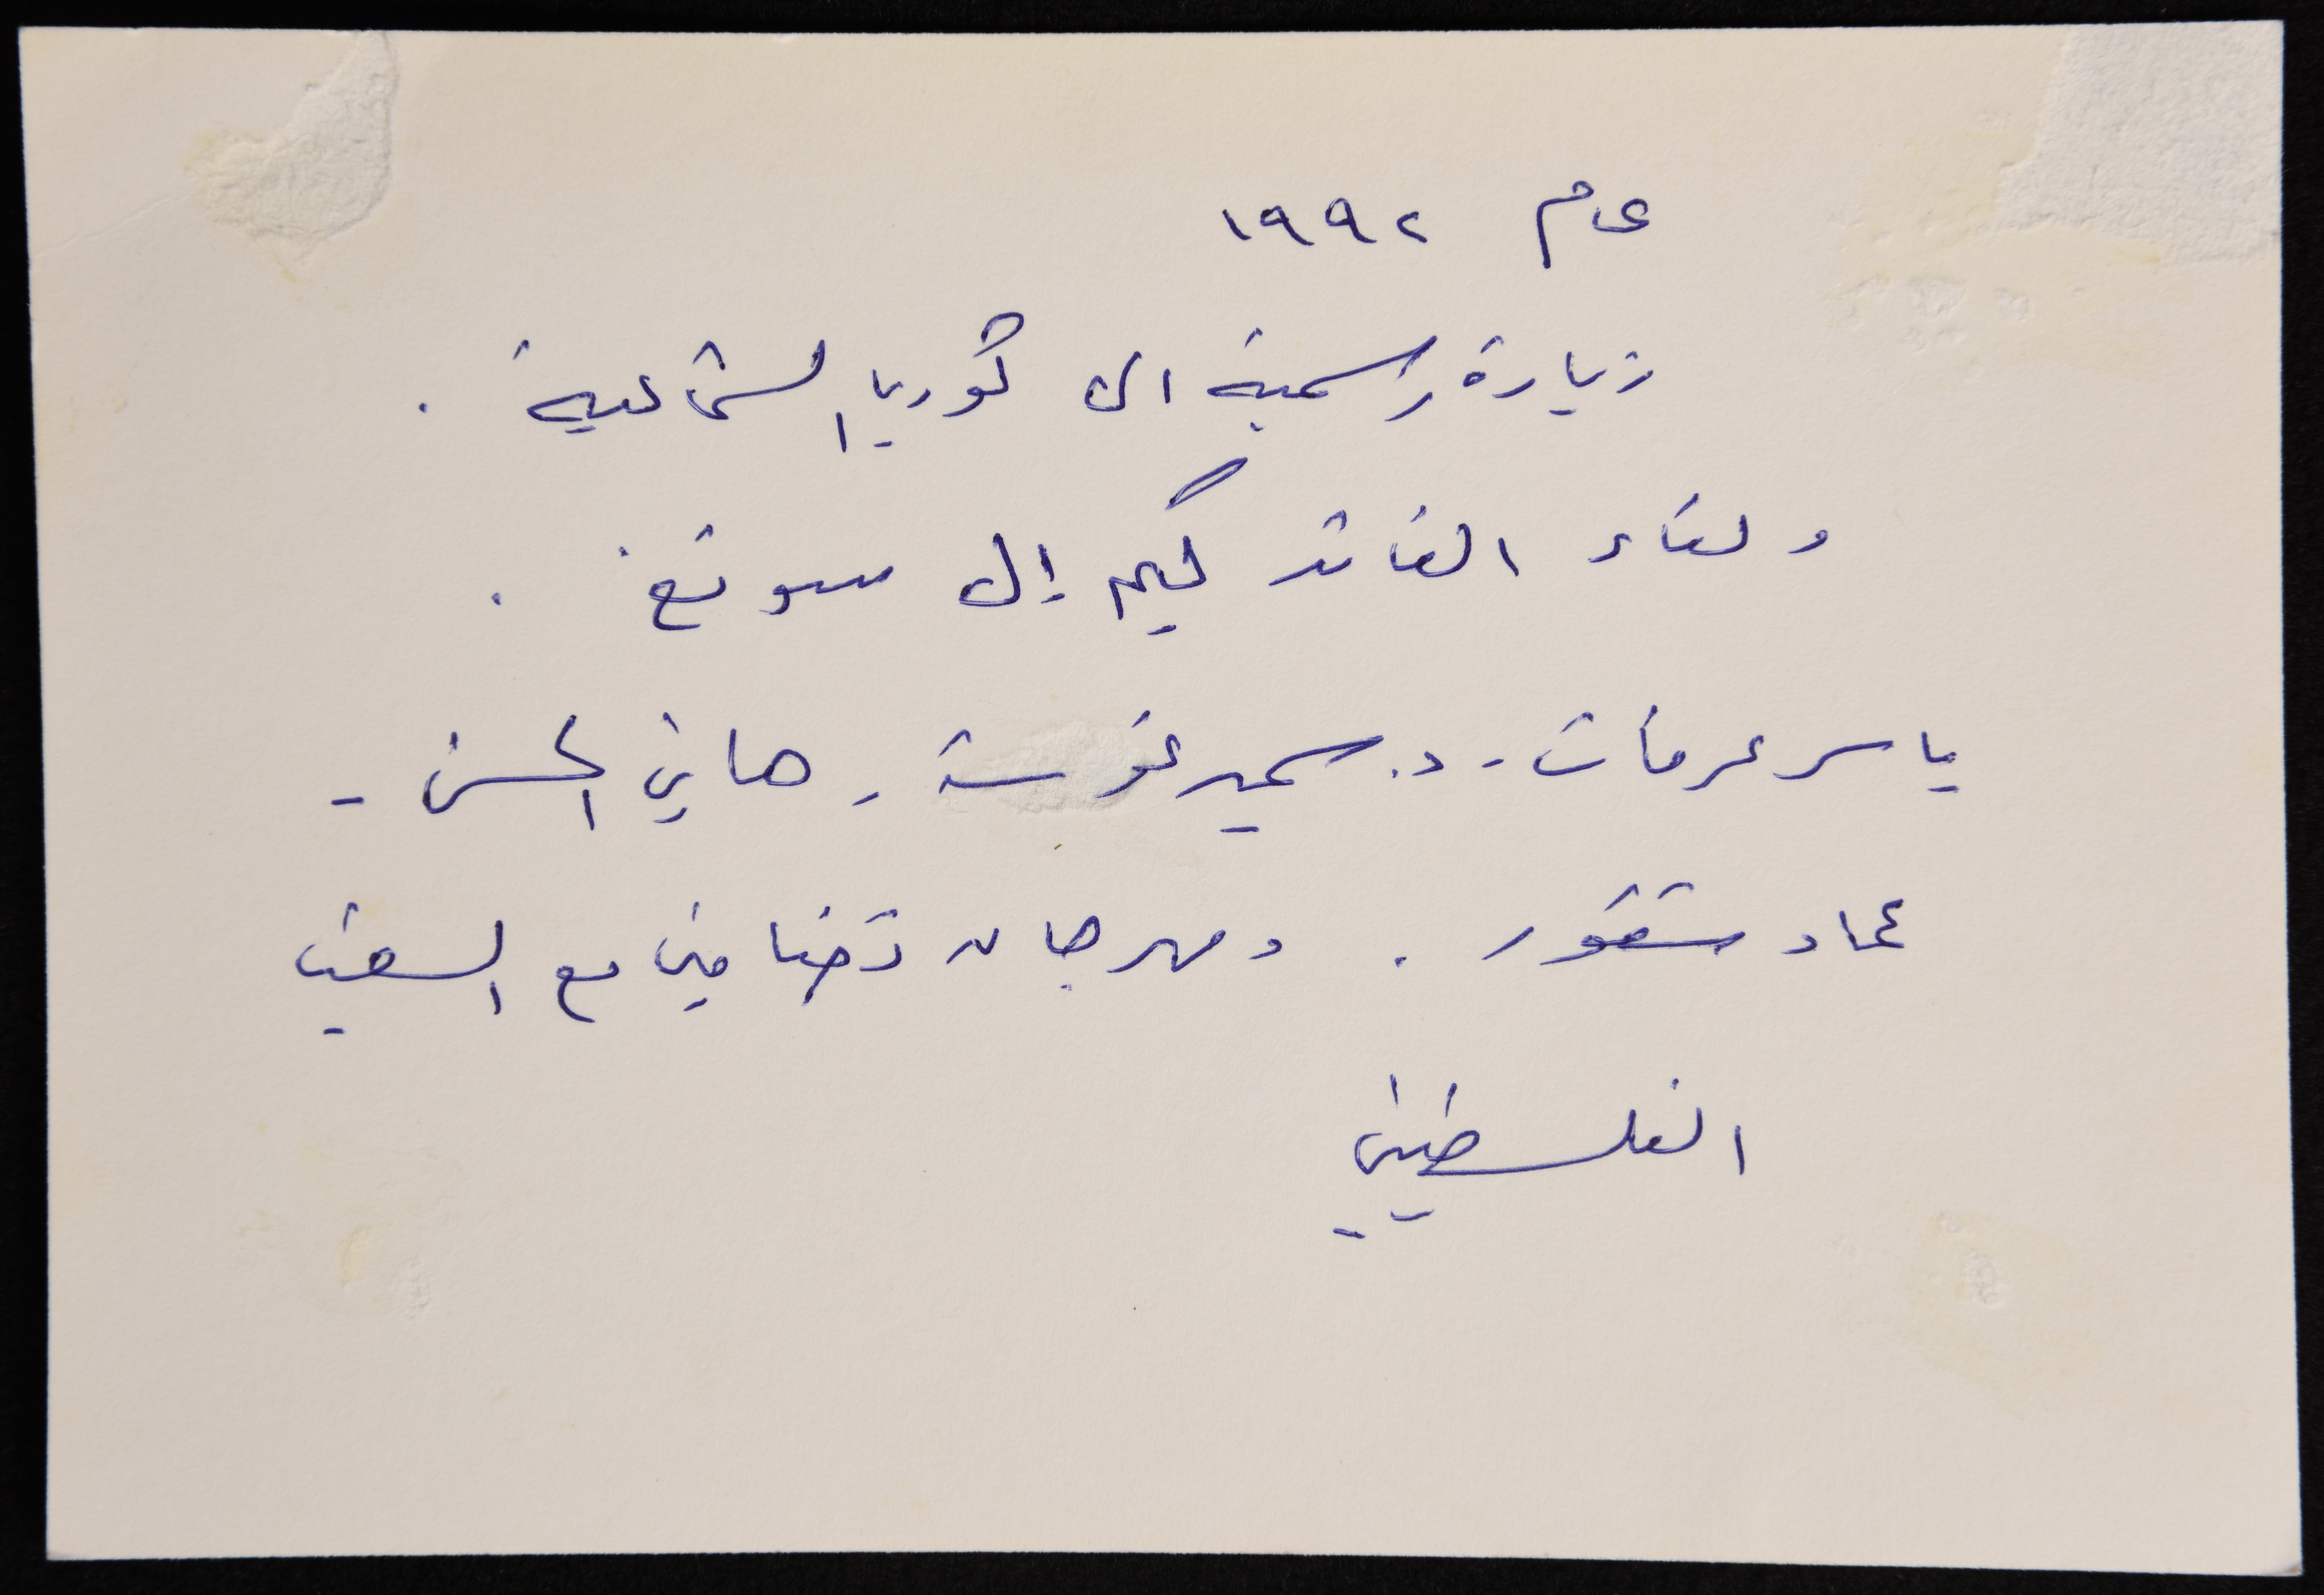 عام ١٩٩٢
زيارة رسمية الى كوريا الشمالية .
ولقاء القائد كيم إل سونغ .
ياسر عرفات - د. سمير غوشة - هاني الحسن -
عماد شقور . ومهرجان تضامني مع الشعب
الفلسطيني